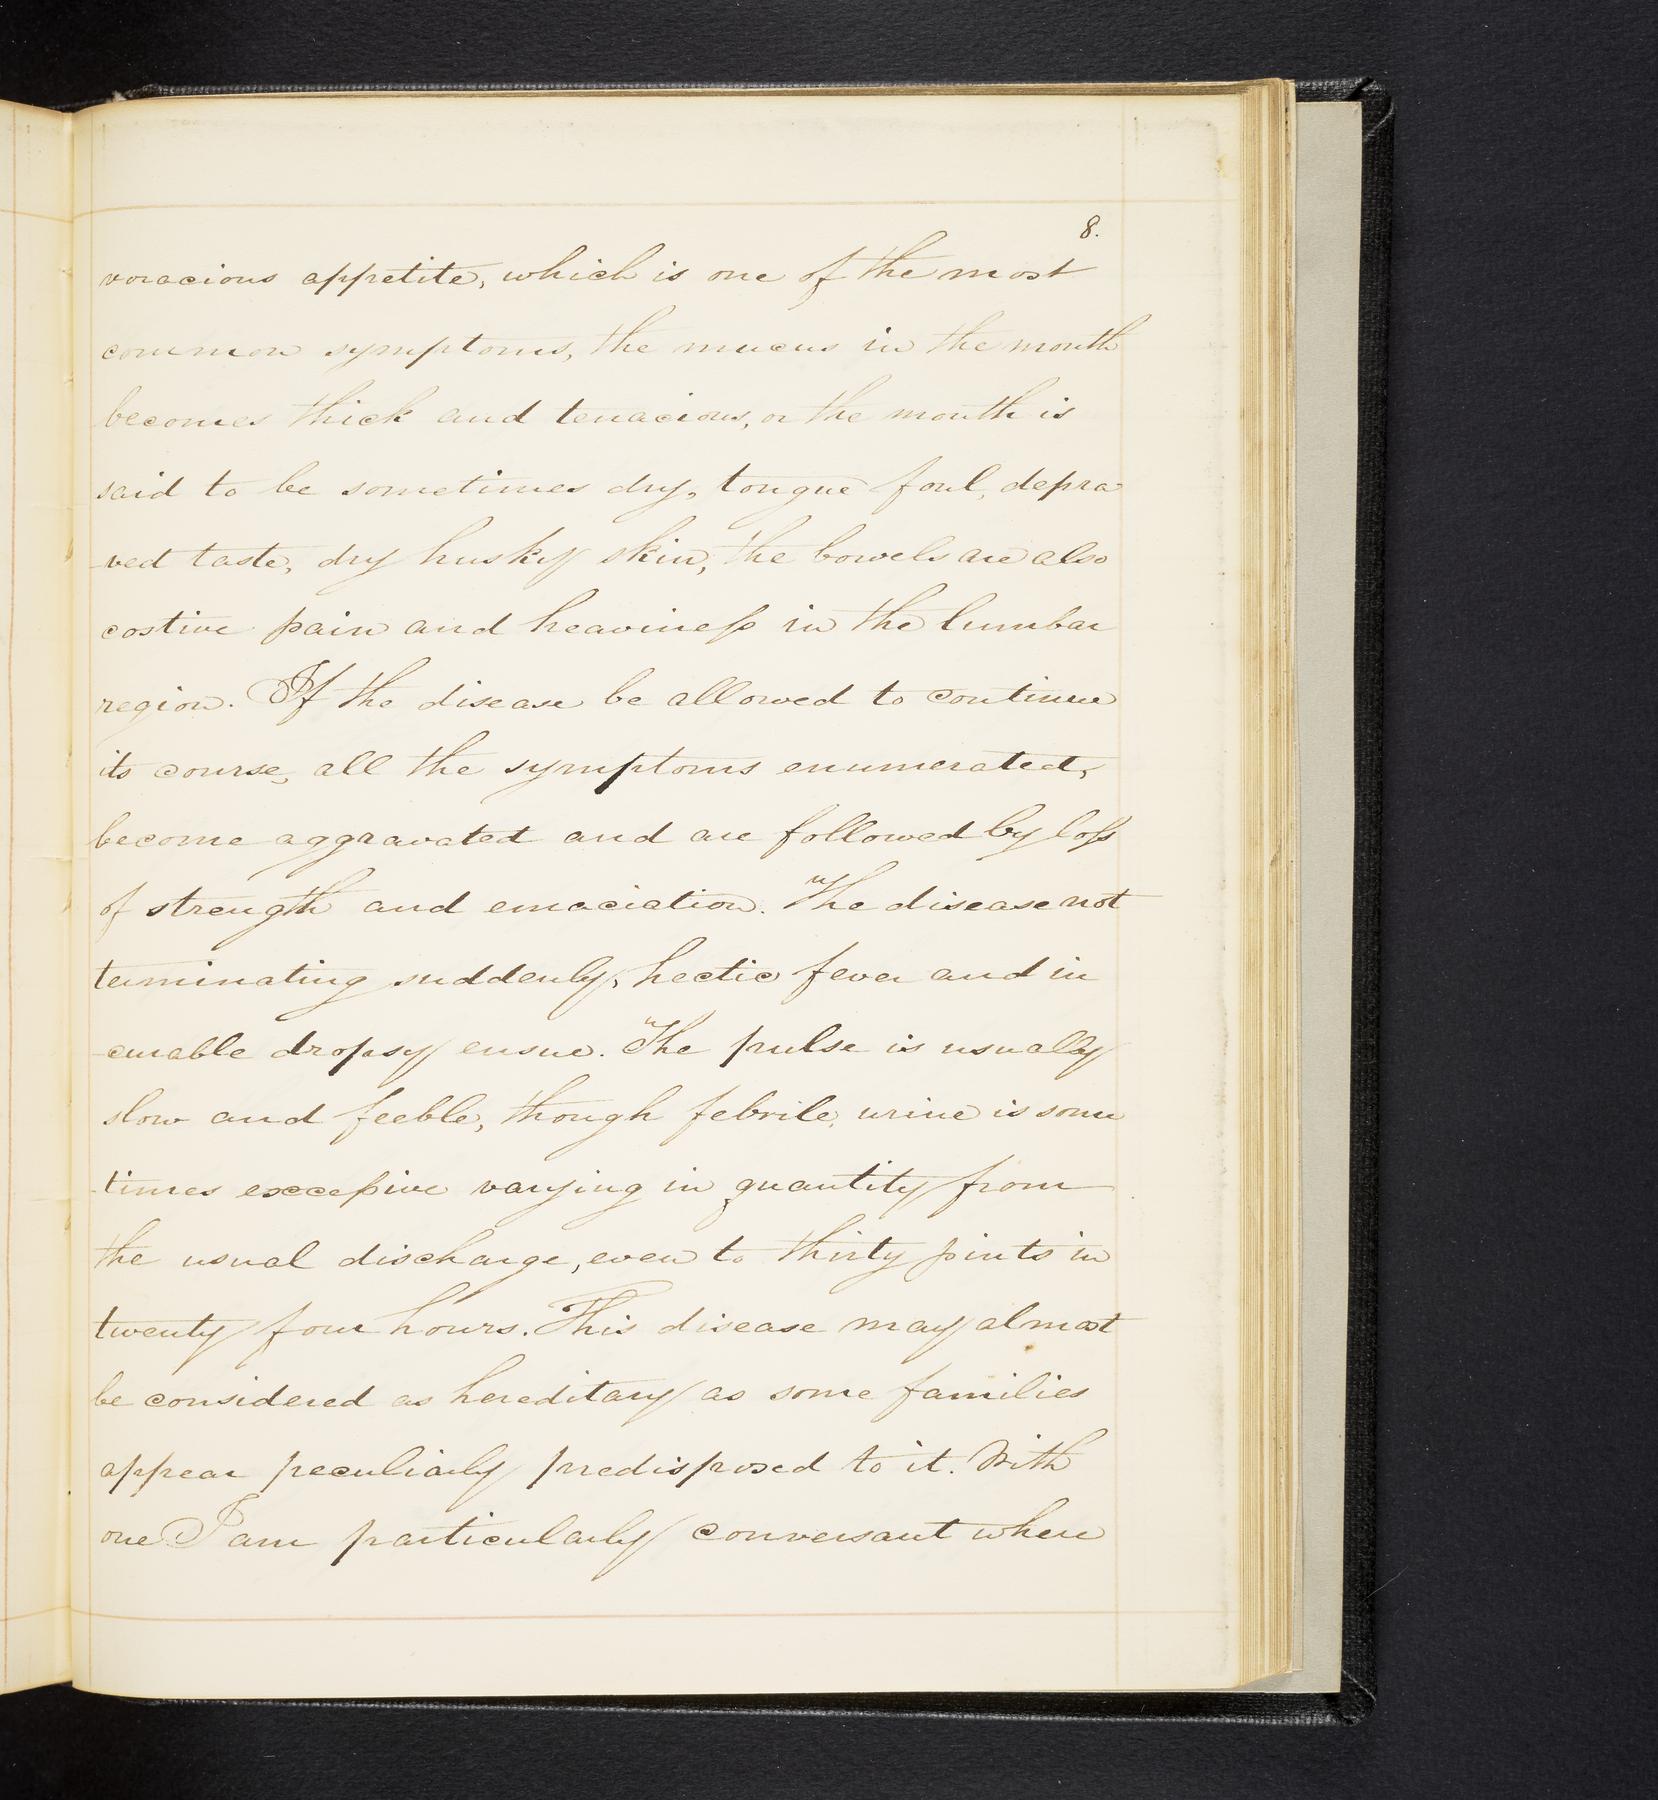 8.
voracious appetite, which is one of the most
common symptoms, the mucus in the mouth
becomes thick and tenacious, or the mouth is
said to be sometimes dry, tongue foul, depra
-ved taste, dry husky skin, the bowels are also
costive pain and heaviness in the lumbar
region. If the disease be allowed to continue
its course, all the symptoms enumerated,
become aggravated and are followed by loss
of strength and emaciation. The disease not
terminating suddenly, hectic fever and in
-curable dropsy ensue. The pulse is usually
slow and feeble, though febrile, urine is some
-times excessive varying in quantity from
the usual discharge, even to thirty pints in
twenty four hours. This disease may almost
be considered as hereditary as some families
appear peculiarly predisposed to it. With
one I am particularly conversant where